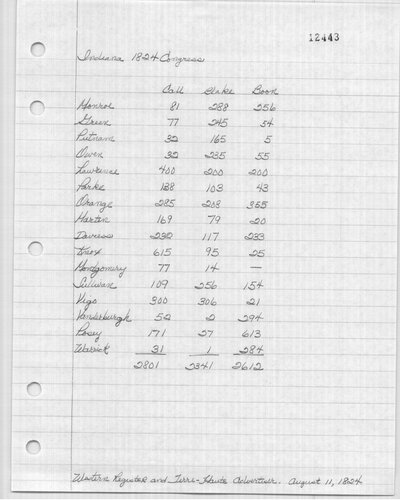 12443
Indiana 1824 Congress
Call Blake Boon
Monroe 81 288 256
Green 77 245 54
Putnam 32 165 5
Owen 32 235 55
Lawrence 400 200 200
Parke 138 103 43
Orange 285 208 355
Martin 169 79 20
Daviess 232 117 233
Knox 615 95 25
Montgomery 77 14 —
Sullivan 109 256 154
Vigo 300 306 21
Vanderburgh 52 2 294
Posey 171 27 613
Warrick 31 1 284
2801 2341 2612
Western Register and Terre-Haute Advertiser. August 11, 1824